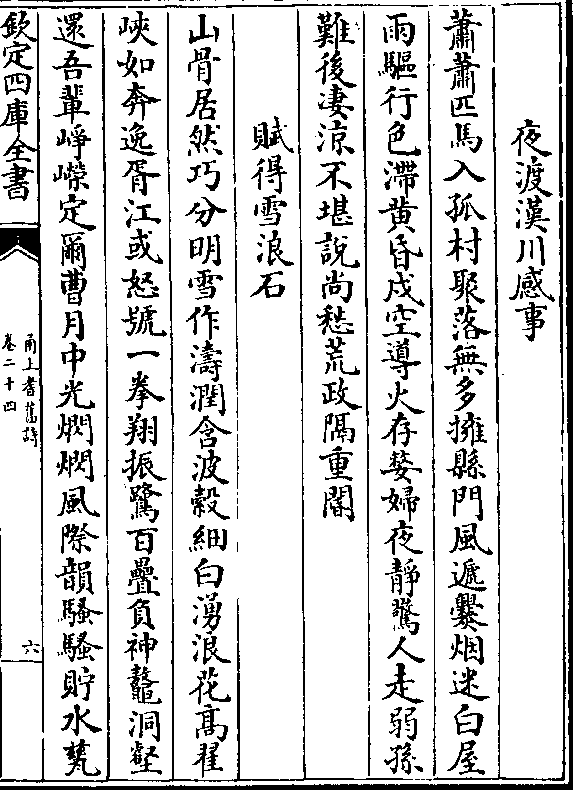 夜渡漢川感事
蕭蕭匹馬入孤村聚落無多擁縣門風遞爨烟迷白屋
雨驅行色滯黄昏戍空導火存嫠婦夜靜驚人走弱孫
難後凄涼不堪說尚愁荒政隔重閽
賦得雪浪石
山骨居然巧分明雪作濤潤含波縠細白湧浪花高瞿
峽如奔逸胥江或怒號一拳翔振鷺百疊負神鼇洞壑
還吾輩崢嶸定爾曹月中光燜燜風際韻騷騷貯水甃
欽定四庫全書
甬上耆舊詩
卷二十四
六